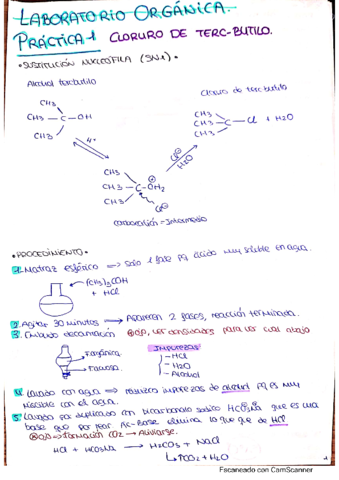 LABORATORIO ORGÁNICA
PRÁCTICA 1 CLORURO DE TERC-BUTILO.
• SUSTITUCIÓN NUCLEOFILA (SN1) •
Alcohol tercbutilo
Cloruro de terc-butilo
CH3
CH3 — C — OH
CH3
H+
CH3
CH3 — C — Cl + H2O
CH3
Cl⊖
H2O
CH3
CH3 — C — OH2
CH3
Cl⊖
carbocatión = Intermedio
• PROCEDIMIENTO •
1. Matraz esférico => Solo 1 fase pq ácido muy soluble en agua.
(CH3)3COH
+ HCl
2. Agitar 30 minutos -> Aparecen 2 fases, reacción terminada.
3. Embudo decantación ver densidades para ver cual abajo
F.orgánica
F.acuosa
IMPUREZAS:
- HCl
- H2O
- Alcohol
4. Lavado con agua => impurezas de alcohol pq es muy
miscible con el agua.
5. Lavado por duplicado con bicarbonato sódico HCO3Na que es una
base que por reac Ác-Base elimina lo que de HCl
formación CO2 -> Aliviarse.
HCl + HCO3Na -> H2CO3 + NaCl
↑CO2 + H2O
1
Escaneado con CamScanner